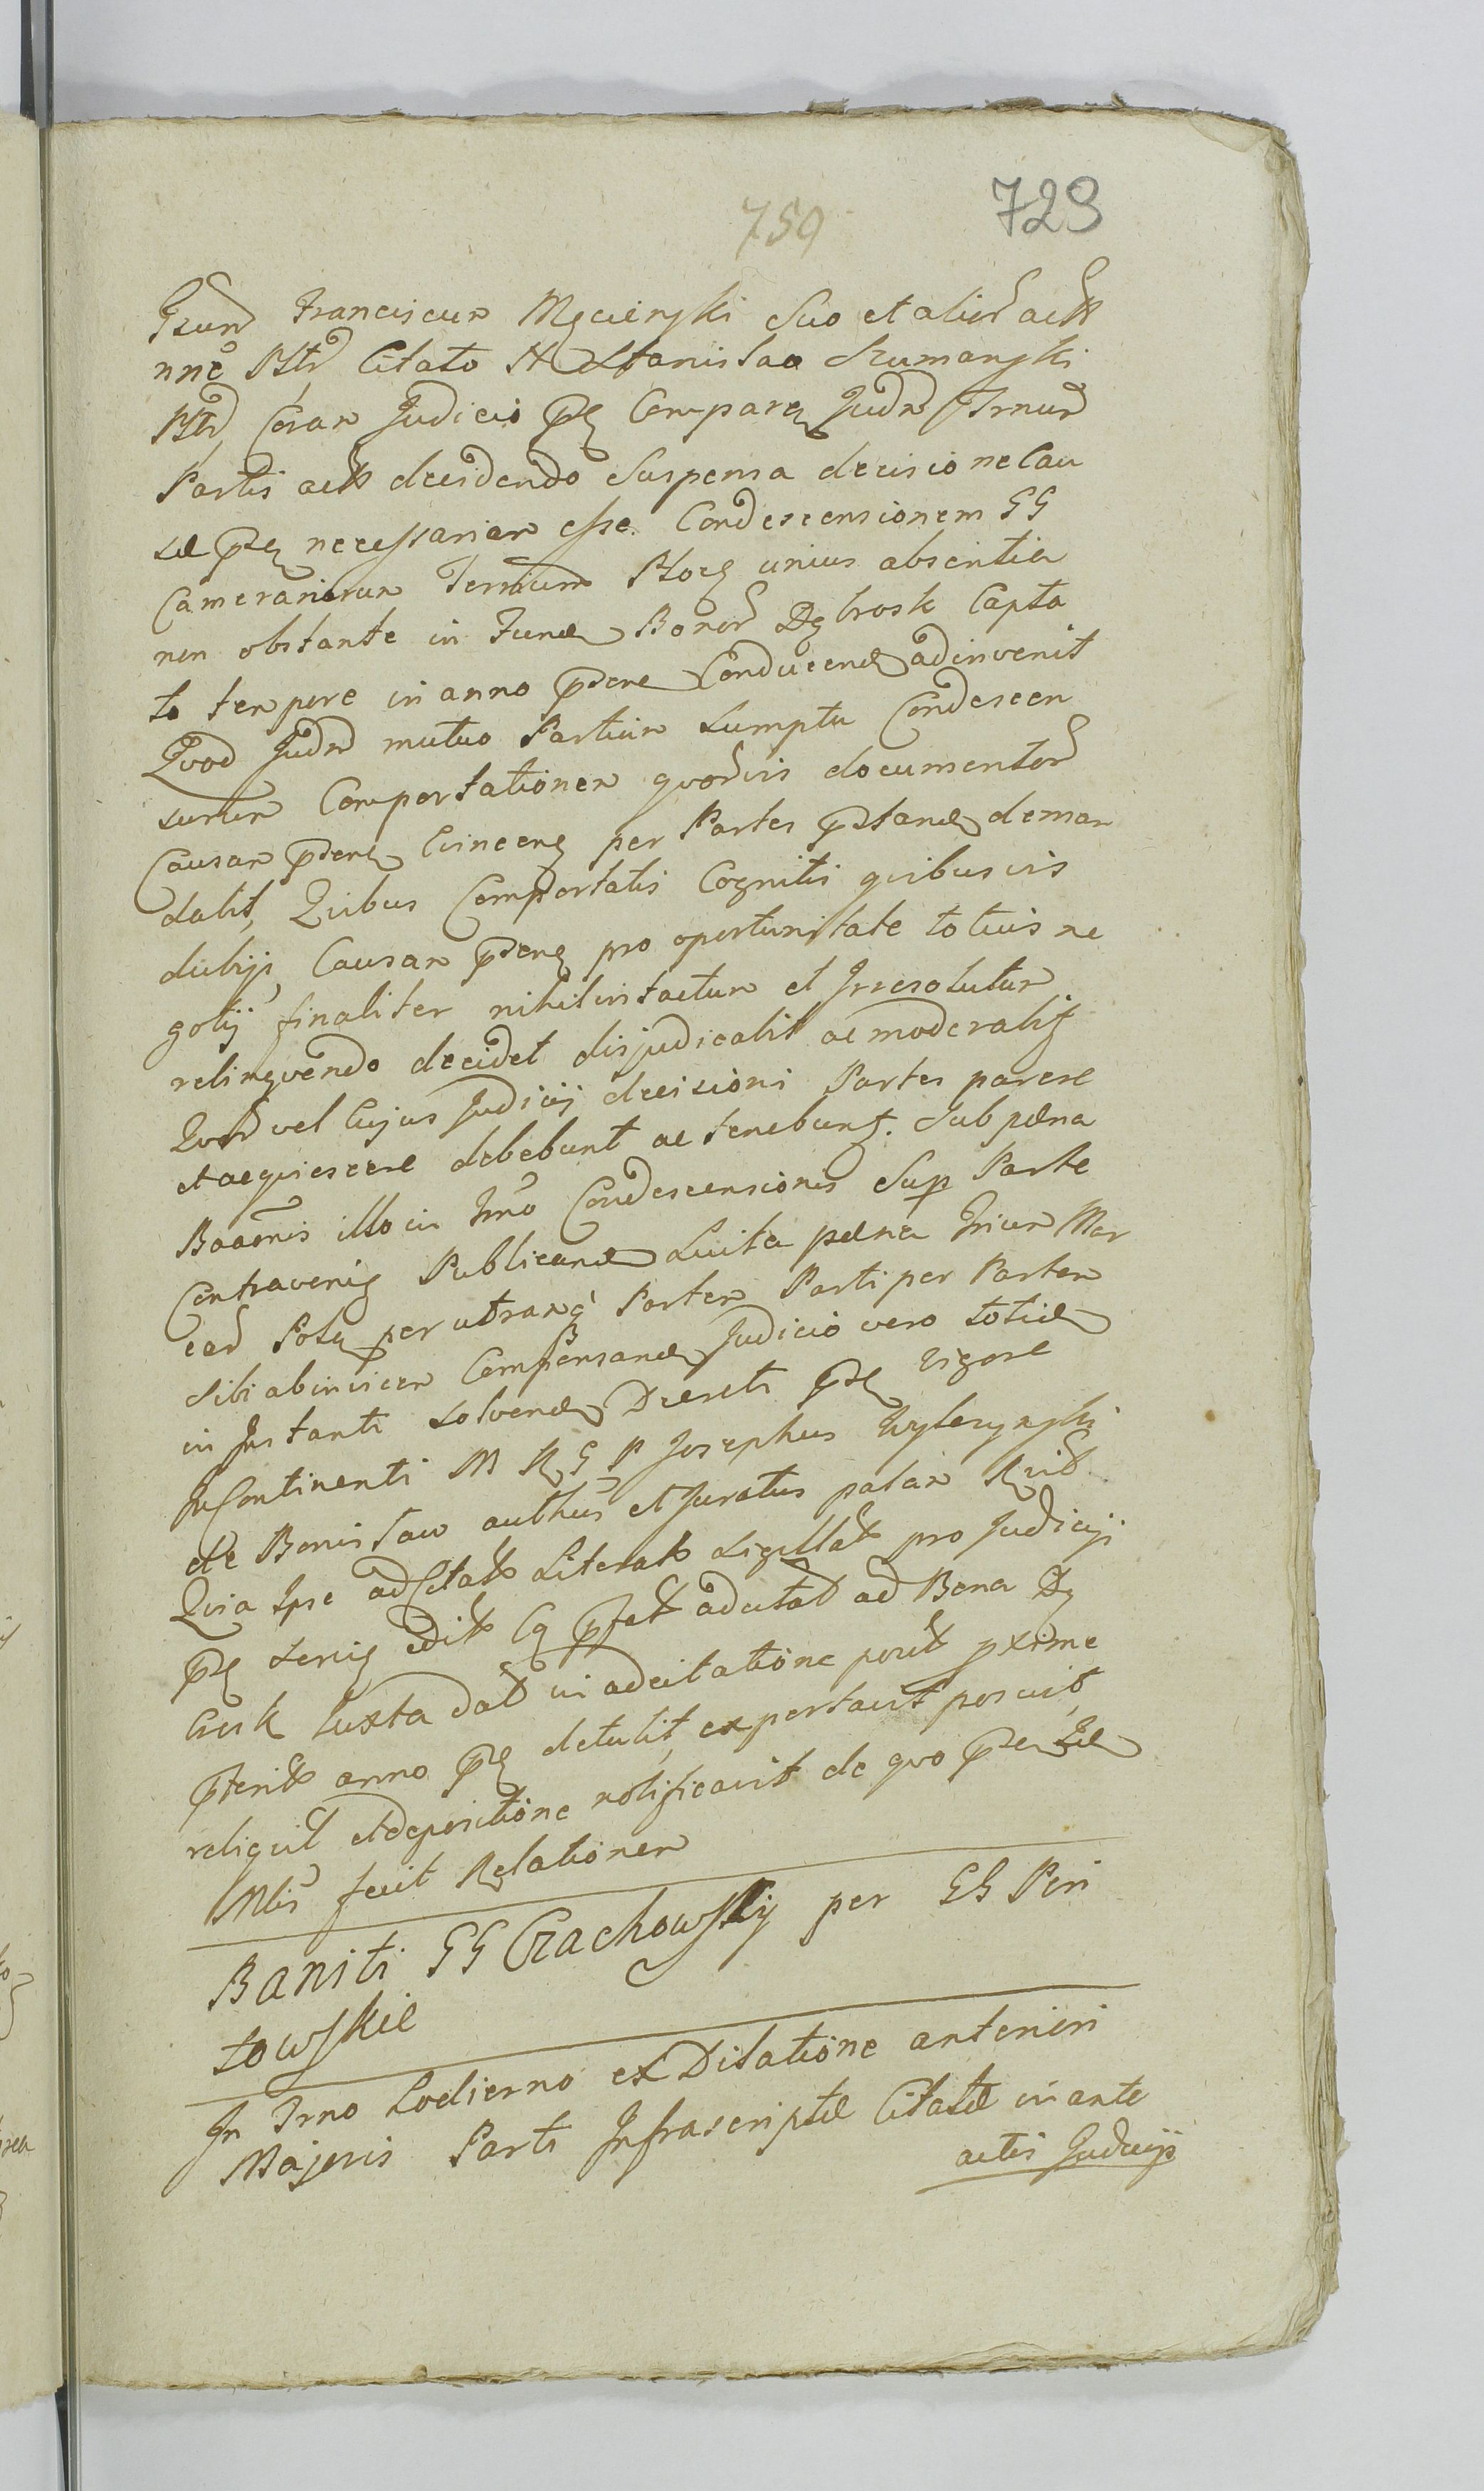 759 729
Gsum Franciscum Męcienski Suo et alior actt
nnē Pltr Citato N Stanislao Szumanski
Pltr Coram Judicio pñ Comparen Judm Trnum
Partis actt decidendo Suspensa decisione Cau
sæ pñ necessariam esse Condescensionem GG
Camerariorum Terrium unius absentia
non obstante in Fund Bonor Dąbrosk Capta
to tempore in anno pñti Conducend adinvenit
Quod Judm mutuo Partium Sumptu Condescen
surum Comportationem quorvis documentor
Causam pñtem Concern per Partes pñstand deman
dabit, Quibus Comportatis Cognitis quibusvis
dubijs, Causam pñtem pro oportunitate totius ne
gotij finaliter nihil intactum et Irresolutum
relinquendo decidet disjudicabit ac moderabit
Quor vel Cujus Judicij decisioni Partes parere
et acquiescere debebunt ac tenebunt. Sub pœna
Bannonis illo in Trno Condescensionis Sup Parte
Contraveni Publicand Luita pœna Trium Mar
car Pol per utramq Partem Parti per Partem
sibi ab invicem Compensand Judicio vero totid
in Instanti solvend Decreti pñ vigore
In Continenti M R G P Josephus Wylezynski
de Bonislaw authus et Juratus palam Rvit
Quia Ipse ad Citatt Literatt Sigillatt pro Judicij
pñ seri edit Cq pñfatt adcitat ad Bona Dą
brosk Juxta dat in adcitatione posit pxime
pñterit anno pñ detulit, exportavit posuit,
reliquit et de positione notificavit de quo
Mlis fecit Relationem
Baniti GG Czachowskij per GG Pin
towskie
In Trno hodierno ex Dilatione anteriori
Majoris Parti Infrascriptæ Citatæ in ante
actis Judicijs